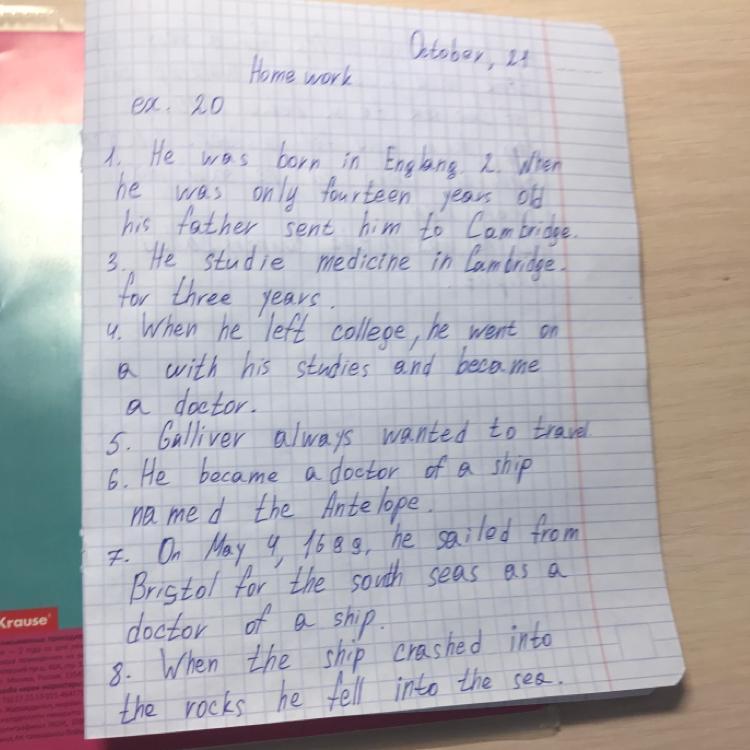 October, 21
Home work
ex. 20
1. He was born in Englang. 2. When
he was only fourteen years old
his father sent him to Cambridge.
3. He studie medicine in Cambridge.
for three years.
4. When he left college, he went on
a with his studies and became
a doctor.
5. Gulliver always wanted to travel
6. He became a doctor of a ship
named the Antelope.
7. On May 4, 1689, he sailed from
Bristol for the south seas as a
doctor of a ship.
8. When the ship crashed into
the rocks he fell into the sea.
Krause